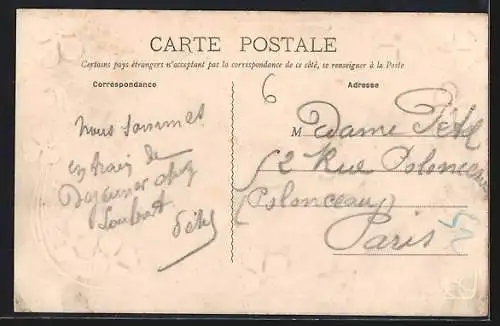 CARTE POSTALE
Certains pays étrangers n'acceptant pas la correspondance de ce côté, se renseigner à la Poste
Correspondance
Adresse
6
Nous sommes
en train de
Déjeuner chez
Loubat
Pétel
Madame Pétel
52 Rue Polonceau
(Polonceau)
Paris